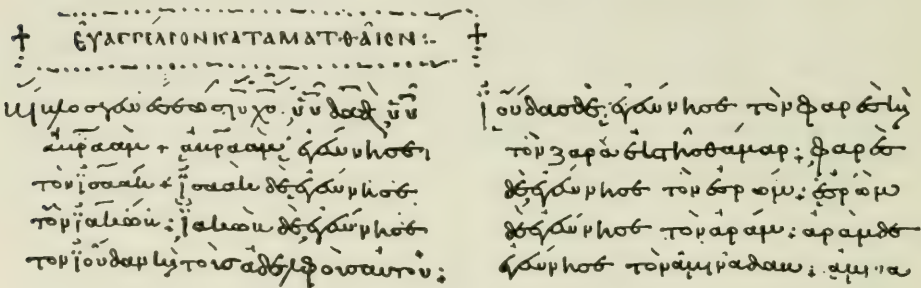 ✝ ΕΥΑΓΓΕΛΙΟΝ ΚΑΤΑ ΜΑΤΘΑΙΟΝ :- ✝
Βίβλοσ γενέσεωσ ιυ χυ υυ δαδ υυ
ἀβραάμ + ἀβραὰμ ἐγέννησε
τὸν ἰσαάκ + ἰσαὰκ δὲ ἐγέννησε
τὸν ἰακώβ : ἰακὼβ δὲ ἐγέννησε
τὸν ἰούδαν κ τοὺσ ἀδελφοὺσ αὐτοῦ :
Ἰούδασ δὲ ἐγέννησε τὸν φαρὲσ κ
τὸν ζαρὰ ἐκ τῆσ θάμαρ : φαρὲσ
δὲ ἐγέννησε τὸν ἐσρώμ : ἐσρὼμ
δὲ ἐγέννησε τὸν ἀράμ : ἀρὰμ δὲ
ἐγέννησε τὸν ἀμιναδάβ : ἀμινα